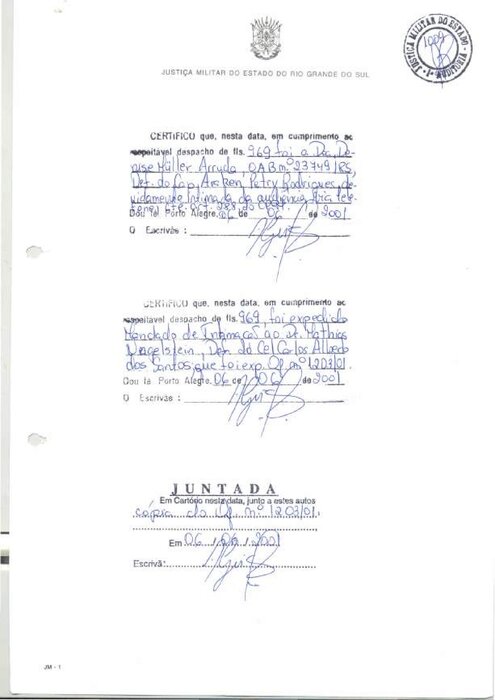 JUSTIÇA MILITAR DO ESTADO
1009
1ª AUDITORIA
JUSTIÇA MILITAR DO ESTADO DO RIO GRANDE DO SUL
CERTIFICO que, nesta data, em cumprimento ao
respeitável despacho de fls. 969 foi a Dra. De-
nise Müller Arruda, OAB nº 23749/RS,
Def. do Cap. Arcken Petry Rodrigues, de-
vidamente intimada da audiência, via tele-
fone, art. 288, do CPPM.
Dou fé Porto Alegre, 06 de 06 de 2001
O Escrivão :
CERTIFICO que, nesta data, em cumprimento ao
respeitável despacho de fls. 969, foi expedido
Mandado de Intimação ao Dr. Mathias
Nagelstein, Def. do Cel Carlos Alberto
dos Santos, que foi exp. Of. nº 1203/01.
Dou fé Porto Alegre, 06 de 06 de 2001
O Escrivão :
JUNTADA
Em Cartório nesta data, junto a estes autos
cópia do Of. nº 1203/01.
Em 06 / 06 / 2001
Escrivã:
JM - 1